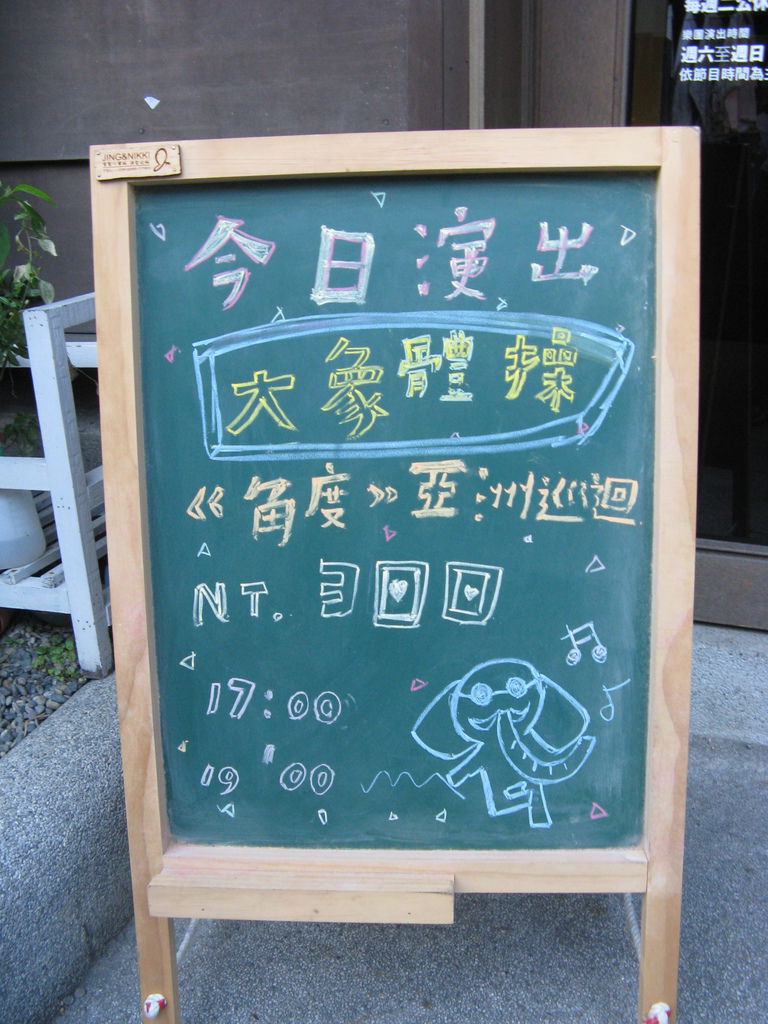 每週二公休
樂團演出時間
週六至週日
依節目時間為主
JING&NIKKI
今日演出
大象體操
《角度》亞洲巡迴
NT. 300
17:00
19:00